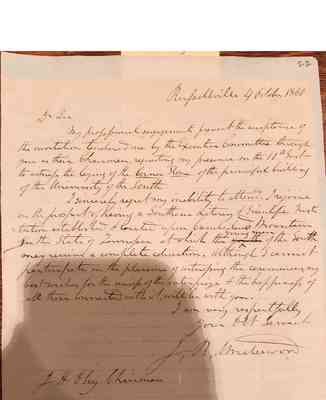 22
Russellville 4 October 1860
Dr Sir
My professional engagements prevent the acceptance of
the invitation tendered me by the Executive Committee through
you as their Chairman, requesting my presence on the 11th Inst
to witness the laying of the Corner Stone of the principal building
of the University of the South
I sincerely regret my inability to attend. I rejoice
in the prospect of having a Southern Literary & Scientific Insti
tution established & located upon Mountain
in the State of Tennessee at which the young men of the South
may receive a complete education. Although I cannot
participate in the pleasure of witnessing the ceremonies my
best wishes for the success of the enterprize & the happiness of
all those connected with it, will be with you.
I am very respectfully
Your Obt Servant
J. R. Underwood
Chairman